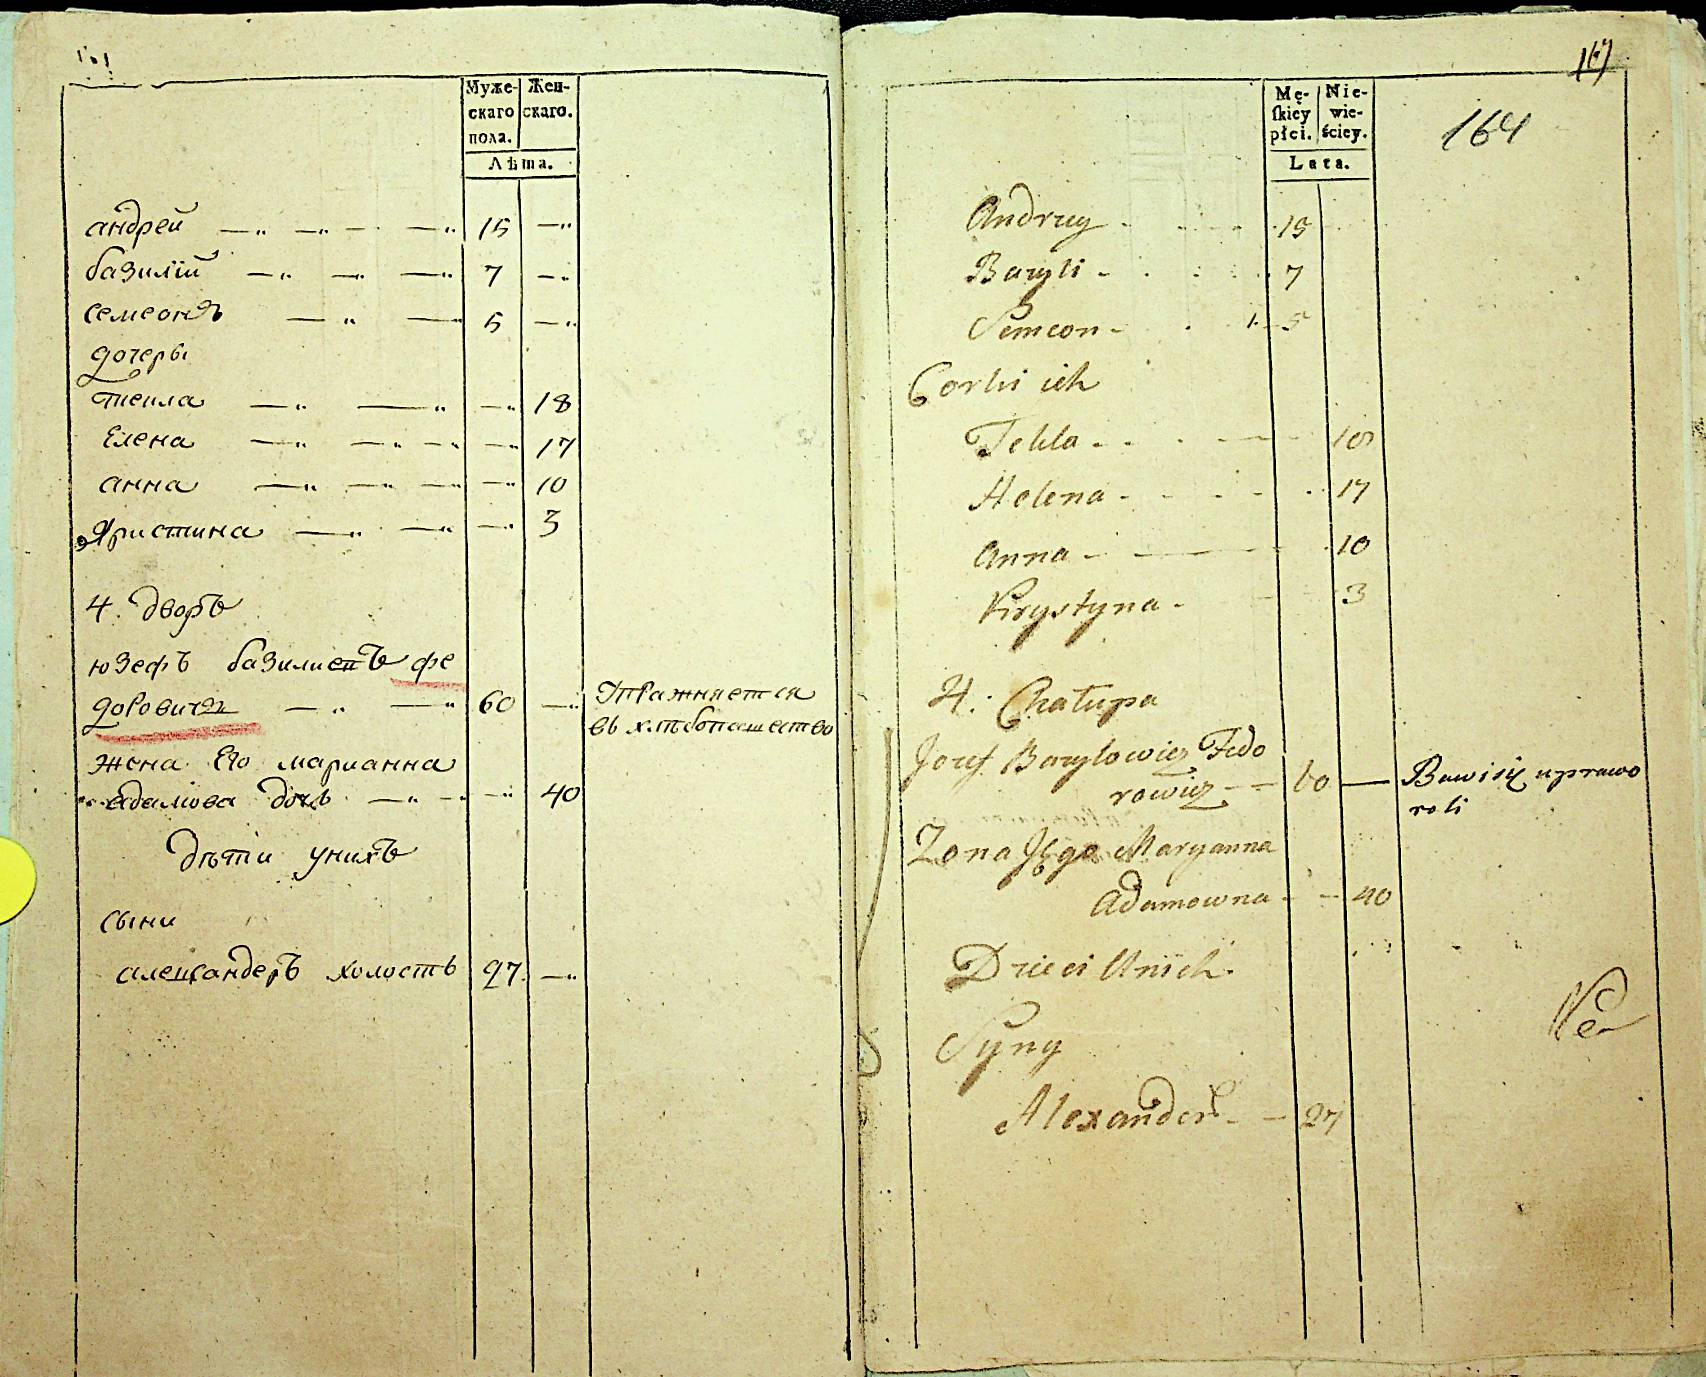 Муже-
скаго
пола.
Жен-
скаго.
Лѣта.
андрей 15
базилій 7
семеонъ 5
дочеры
текла 18
Елена 17
анна 10
Христина 3
4. дворъ
юзефъ базилиевъ фе
доровичъ 60 упражняется
въ хлѣбопашество
жена Его марианна
адамова дочь 40
дѣти унихъ
сыни
александеръ холостъ 27
164
Mę-
skiey
płci.
Nie-
wie-
ściey.
Lata.
Andrzey 15
Bazyli 7
Semeon 5
Corki ich
Tekla 18
Helena 17
Anna 10
Krystyna 3
4. Chałupa
Jozef Bazylowicz Fedo
rowicz 60 — Bawi się uprawo
roli
Zona Jego Maryanna
Adamowna 40
Dzieci Unich
Syny
Alexander 27